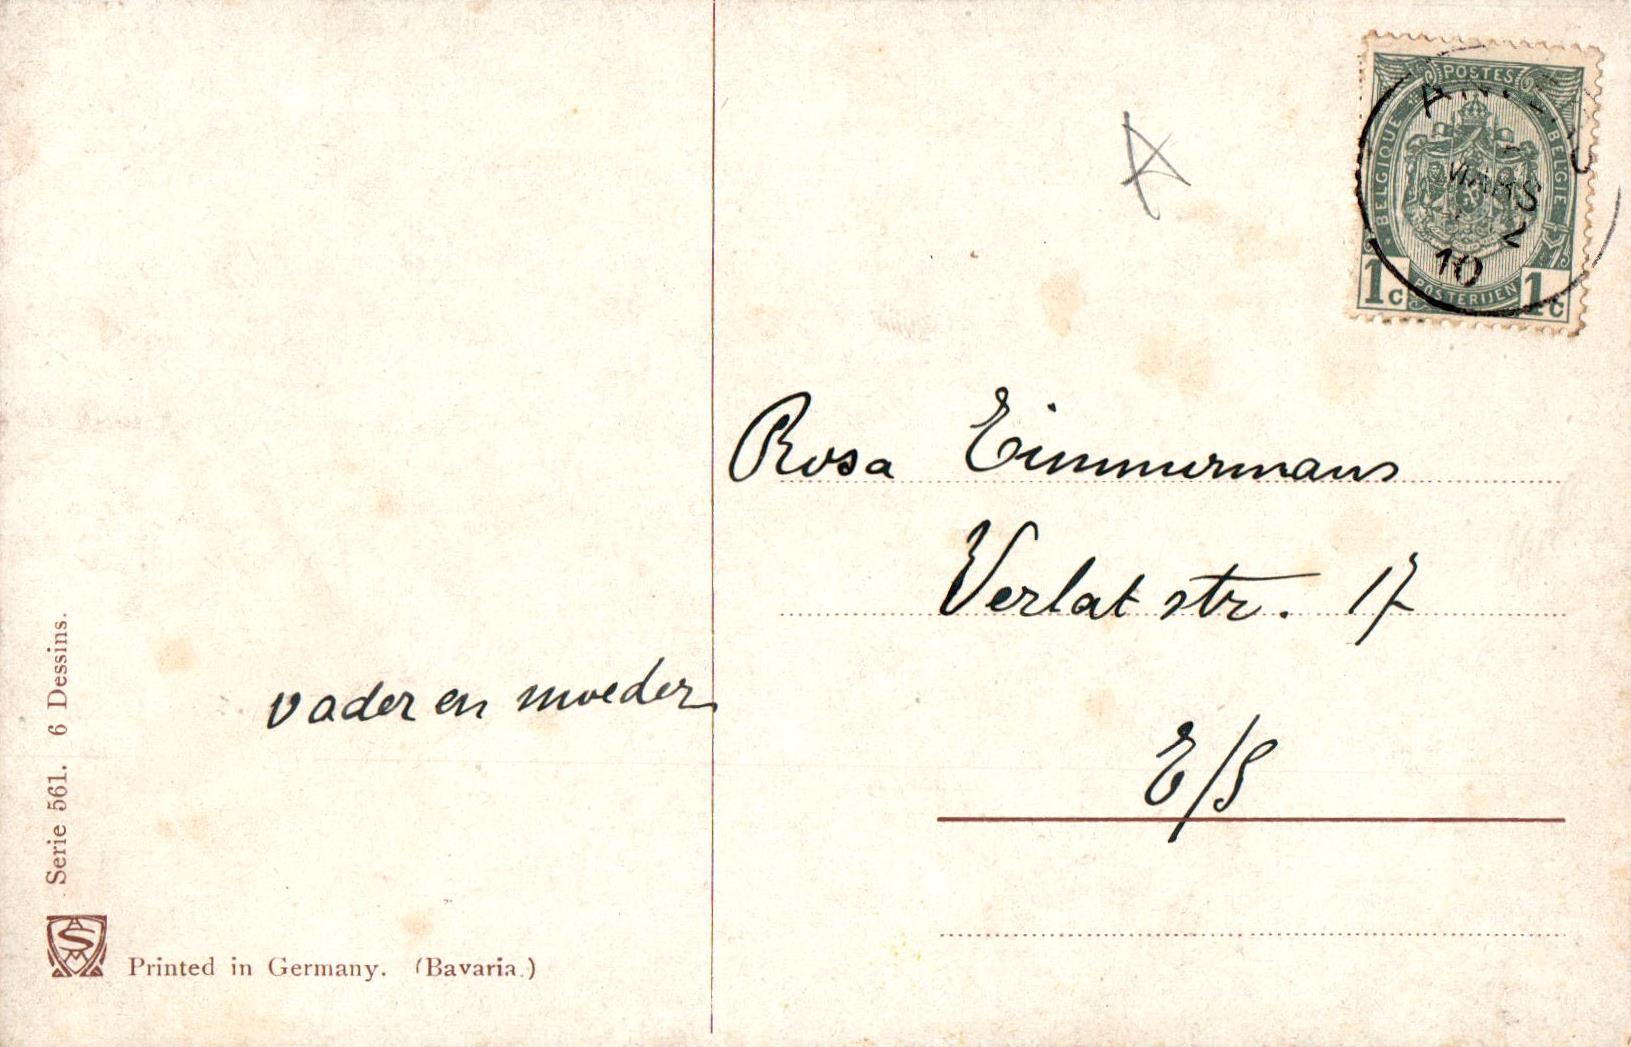 POSTES
BELGIQUE
BELGIE
MARS
10
1c POSTERIJEN 1c
Rosa Eimmermans
Verlat str. 17
vader en moeder
E/S
Serie 561. 6 Dessins.
Printed in Germany. (Bavaria.)